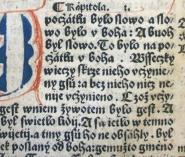 Kapitola. 1.
počátku bylo slowo a slo
wo bylo v boha : A buoh
byl slowo. To bylo na po
čátku v boha. Wsseczky
wieczy skrze nieho vczynie
ny gsu a bez nieho nicz ne
nie vczynieno. Czož vczy
gest w niem žywotem bylo gest. A
byl swietlo lidij. A swietlo w temno
swietij. a tmy gsu ho neobsahly. byl
posłany od boha: gemužto gmeno